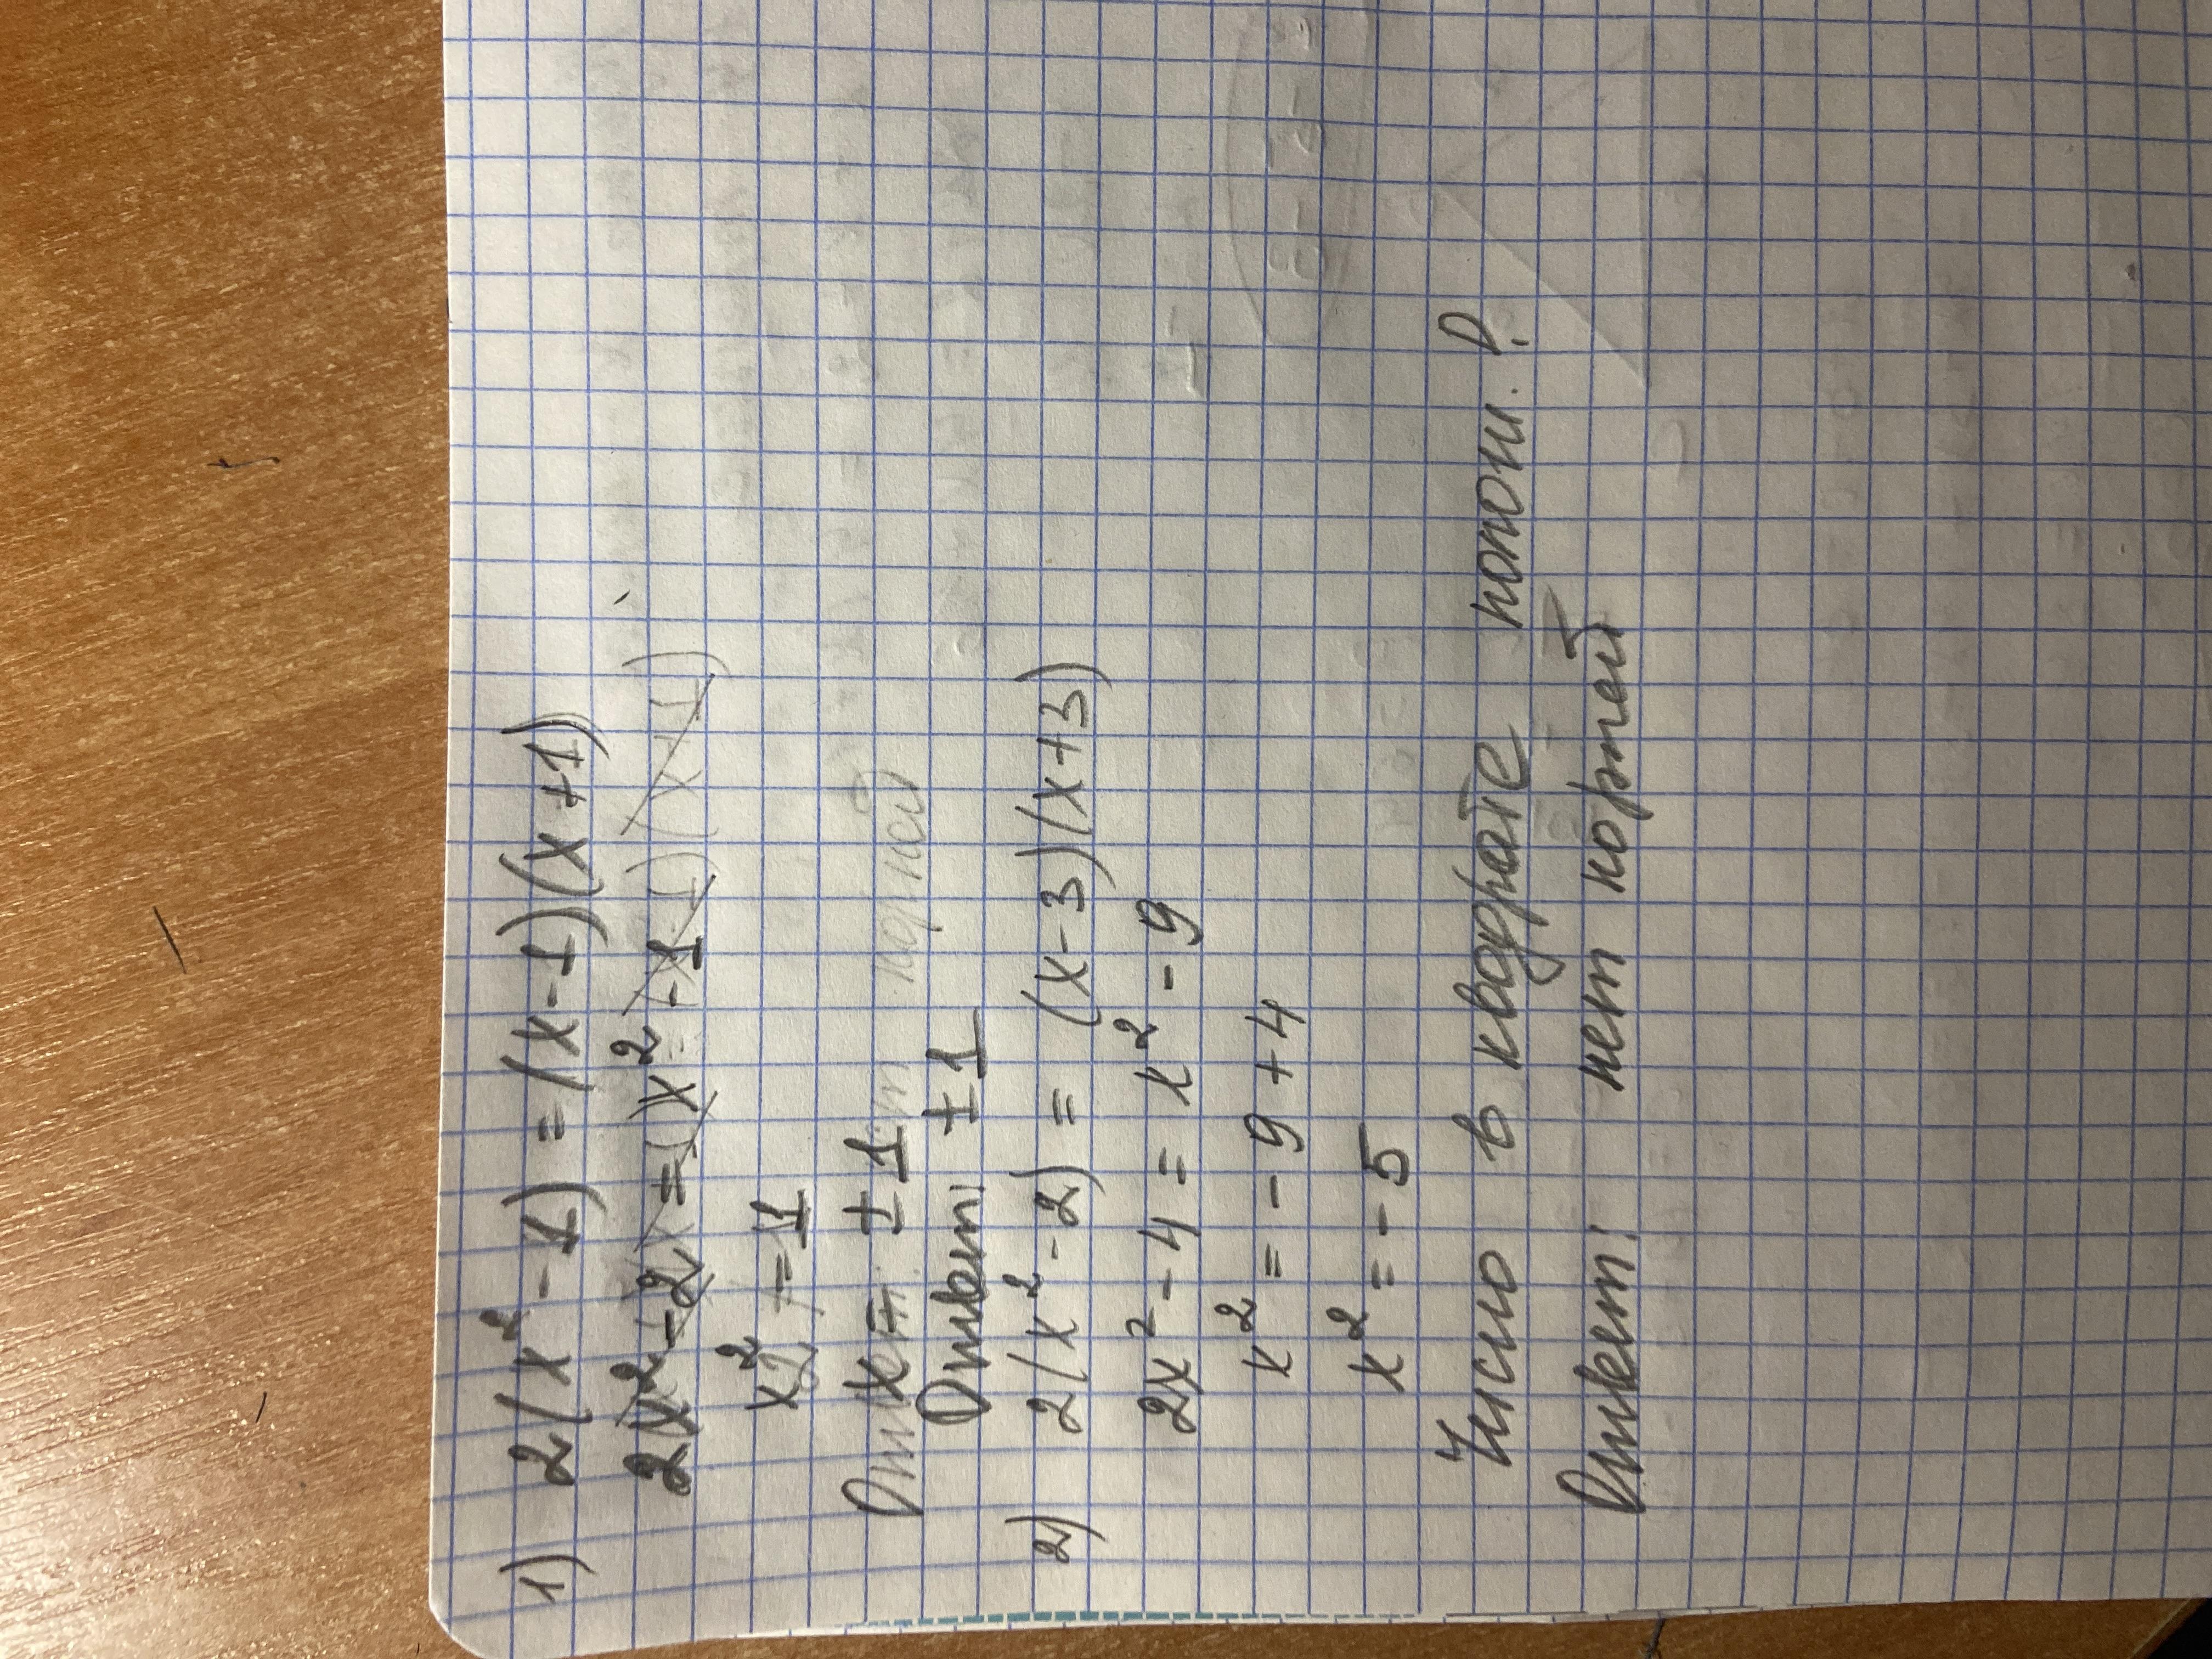 1) 2(x² - 1) = (x - 1)(x + 1)
2x² - 2 = x² - 1
x² = 1
x = ± 1
Ответ: ± 1
2) 2(x² - 2) = (x - 3)(x + 3)
2x² - 4 = x² - 9
x² = - 9 + 4
x² = - 5
Число в квадрате полож.
Ответ: нет корней